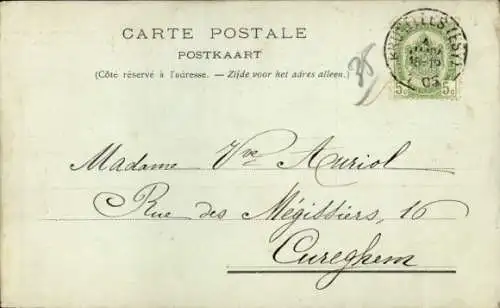 CARTE POSTALE
POSTKAART
(Côté réservé à l'adresse. — Zijde voor het adres alleen.)
38
BRUXELLES (EST)
4
18-19
03
5c 5c
Madame Vve Auriol
Rue des Mégissiers, 16
Cureghem